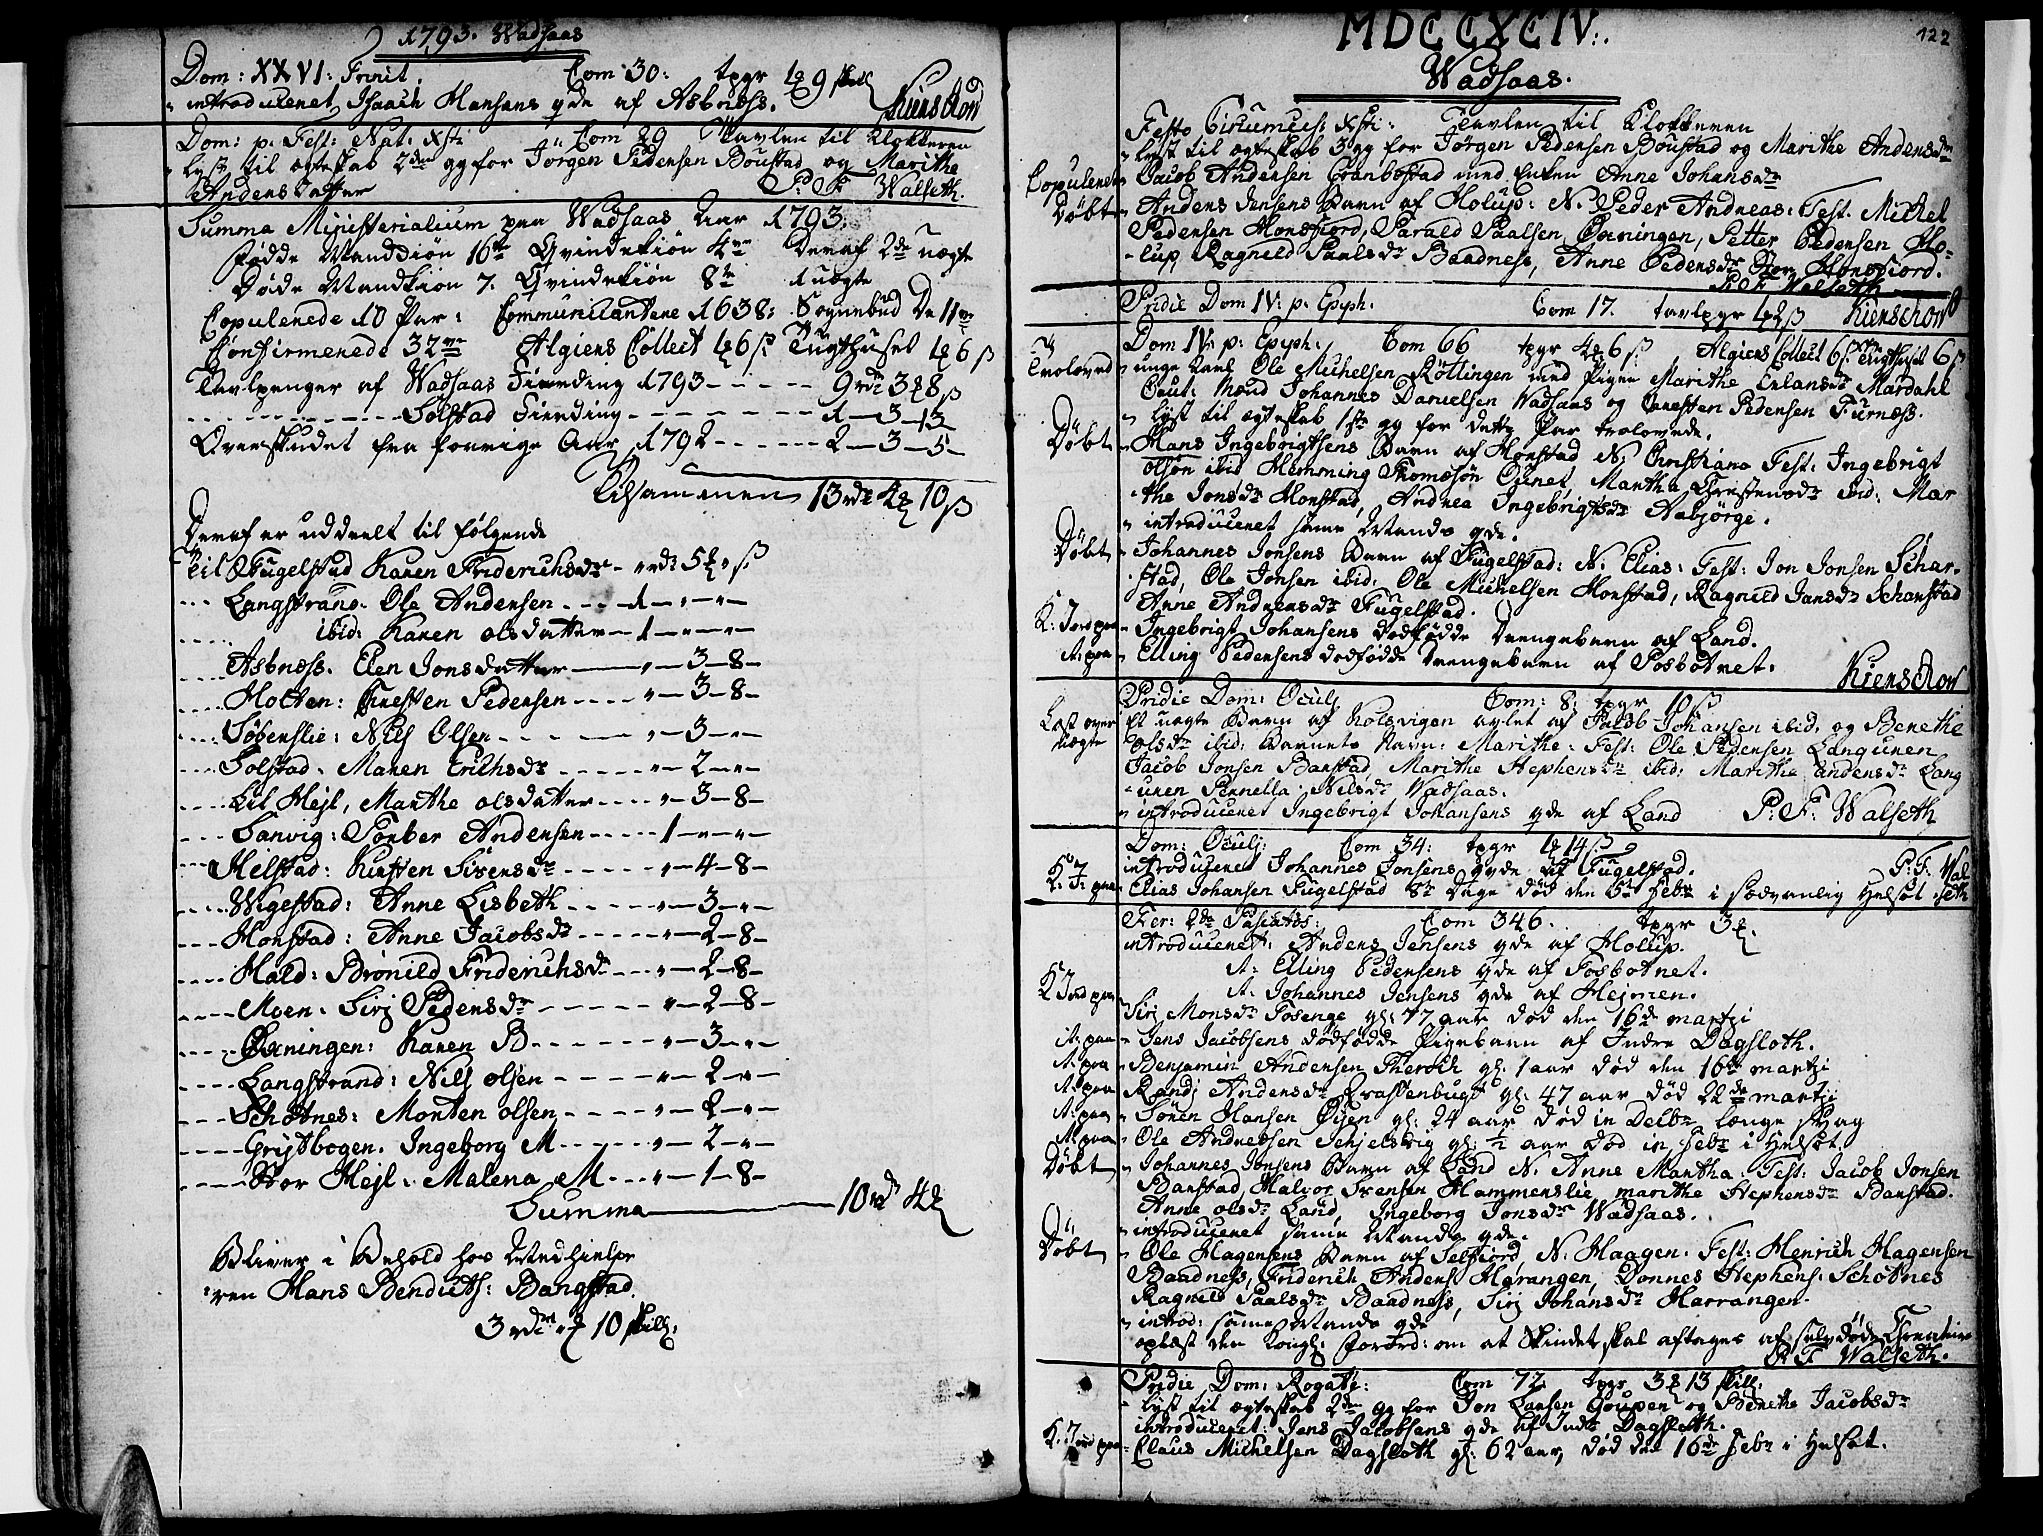 1793. Wadsaas
Dom: XXVI: Trinit. Com 30: tpgr 9 skill
introduceret Isaach Hansens qde af Asbness. Kierschow
Dom: p. Fest: Nat: Xsti Com 29 Tavlen til Klokkeren
lyst til egteskab 2den gg for Jörgen Pedersen Boustad og Marithe
Andersdatter P: F: Walseth.
Summa Ministerialium paa Wadsaas Aar 1793.
Fødde Mandkiön 16 Qvindekiön 4 Deraf 2de uegte
Døde Mandkiön 7. Qvindekiön 8te 1 uegte
Copulerede 10 Par: Communicantere 1638: Sognebud De 11
Confirmerede 32 Algiers Collect 6 ß Tugthuset 6 ß
Tavlpenger af Wadsaas Fierding 1793 - - - - - 9 rdr 3 8 ß
- - - - - - - - Solstad Fierding - - - - - - - 1 - 3 - 13
Overskudet fra forrige Aar 1792 - - - - - - 2 - 3 - 5 -
Tilsammen 13 rdr 4 10 ß
Deraf er uddeelt til følgende
Til Fugelstad Karen Friderichsdr - rdr 5 ß
- - - Langstrand. Ole Andersen - - - 1 - " - " -
- - - - ibid: Karen olsdatter - 1 - " - " -
- - - - Asbness. Elen Jonsdatter - " - 3 - 8 -
- - - - Holten: Kristen Pedersen - - - - " - 3 - 8 -
- - - - Søberslie: Nils Olsen - - - - - " - 3 - " -
- - - - Solstad. Maren Erichsdr - - - - - " - 2 - " -
- - - - Lil Hejl, Marthe olsdatter - - - - " - 3 - 8 -
- - - - Sanvig: Torber Andersen - - - - - 1 - " - " -
- - - Helstad: Kirsten Sivensdr - - - - - " - 4 - 8 -
- - - - Wigestad: Anne Lisbeth - - - - - " - 3 - " -
- - - - Horstad: Anne Jacobsdr - - - - - " - 2 - 8 -
- - - - Hald: Brønild Friderichsdr - - - " - 2 - 8 -
- - - - Moen. Siri Pedersdr - - - - - - " - 2 - 8 -
- - - - Øxningen: Karen B - - - - - - " - 3 - " -
- - - - Langstrand: Nils olsen - - - - - " - 2 - " -
- - - - Schotnes: Morten olsen - - - - " - 2 - " -
- - - - Gristbogen. Ingeborg M - - - - " - 2 - " -
- - - - Stor Hejl. Malena M - - - " - 1 - 8 -
Summa 10 rdr 4
Bliver i Behold hos Medhielpe
ren Hans Bendicths: Bangstad.
3 rdr 10 skill:
122
MDCCXCIV.
Wadsaas.
Festo Circumcis: Xsti: Tavlen til Klokkeren
lyst til egteskab 3 gg for Jörgen Pedersen Boustad og Marithe Andersdr
Copuleret Jacob Andersen Granbostad med Enken Anne Johansdr
Døbt Anders Jensens Barn af Holup: N. Peder Andreas: Test. Michel
Pedersen Horsfiord, Parald Paalsen, Øxningen, Petter Pedersen Ho-
lup Ragnild Paulsdr Baadness, Anne Pedersdr Stor Horsfiord.
P: F: Walseth
Pridie Dom IV: p. Epyph: Com 17. tavlpgr ß Kierschow
Dom IV: p: Epyph: Com 66 tpgr 4 6 ß, Algiers Collect 6 ß Tugthuset 6 ß
Troloved unge Karl Ole Michelsen Röllingen med Pigen Marithe Erlansdr Mardahl
Caut: Mænd Johannes Danielsen Wadsaas og Christen Pedersen Furness.
lyst til egteskab 1ste gg for dette Par trolovede.
Døbt Hans Ingebrigthsens Barn af Horstad N. Christiana Test: Ingebrigt
olsøn ibid Hemming Thomasøn Öernet, Martha Christensdr ibid: Mar
the Jonsdr Horstad, Andrea Ingebrigtsdr Aabjörge.
introduceret samme Mands qde.
Døbt Johannes Jonsens Barn af Fugelstad: N. Elias: Test: Jon Jonsen Schar-
stad, Ole Jonsen ibid: Ole Michelsen Horstad, Ragnild Jansdr Scharstad
Anne Andreasdr Fugelstad.
K: Jord paa Ingebrigt Johansens dødfødde Drengebarn af Land.
It: paa Elling Pedersens dødfødde Drengebarn af Fosbotnet.
Kierschow
Pridie Dom: Oculi Com: 8: tpgr 10 ß
Læst over Et uegte Barn af Kolsvigen avlet af Jacob Johansen ibid. og Berethe
uegte olsdr ibid: Barnets Navn: Marithe: Test: Ole Pedersen Langunen
Jacob Jonsen Barstad, Marithe Stephensdr ibid: Marithe andersdr Lang
unen Pernella Nilsdr Wadsaas.
introduceret Ingebrigt Johansens qde af Land P: F: Walseth
Dom: Oculi: Com 34: tpgr 14 ß
introduceret Johannes Jonsens qde af Fugelstad. P: F: Wal
K: J: paa Elias Johansen Fugelstad 8te Dage død den 5te Febr i sædvanlig Helsot seth
Fer: 2da Paschatos: Com 346. tpgr 3
introduceret: Anders Jensens qde af Holup.
It: Elling Pedersens qde af Fosbotnet.
It: Johannes Jensens qde af Hejmen.
K Jord paa Siri Monsdr Fosenge gl: 77 aar død den 16de martzi
It: paa Jens Jacobsens dødfødde Pigebarn af Indre Dagsloth.
It: paa Benjamin Andersen Theroch gl. 1 aar død den 16de martzi
It: paa Randi Andersdr Krassenbugt gl. 47 aar død 22de martzi
It: paa Sören Hansen Öyen gl: 24 aar død in Debr længe svag
It: paa Ole Andreasen Schjelsvig gl: ½ aar død in Febr i Helsot
Døbt Johannes Jonsens Barn af Land N. Anne Martha Test: Jacob Jonsen
Barstad, Halvor Iversen Hammerslie, marithe Stephensdr Barstad.
Anne olsdr Land, Ingeborg Jonsdr Wadsaas.
introduceret samme Mands qde.
Døbt Ole Hagensens Barn af Selfiord N. Haagen. Test: Henrich Hagensen
Baadness, Friderich Anders Harangen, Donnes Stephens: Schotnes
Ragnild Paalsdr Baadness, Siri Johansdr Harrangen.
introd: samme Mands qde
oplæst den Kongl: Forord: om at Skindet skal aftages af selvdøde Creature
P: F: Walseth.
Pridie Dom: Rogate: Com 72 tpgr 3 13 skill:
lyst til egteskab 2den gg for Jon Larsen Goupen og Berethe Jacobsdr
introduceret: Jens Jacobsens qde af Indre Dagsloth.
K: Jord paa Claus Michelsen Dagsloth gl: 62 aar, død den 16de Febr i Helsot.